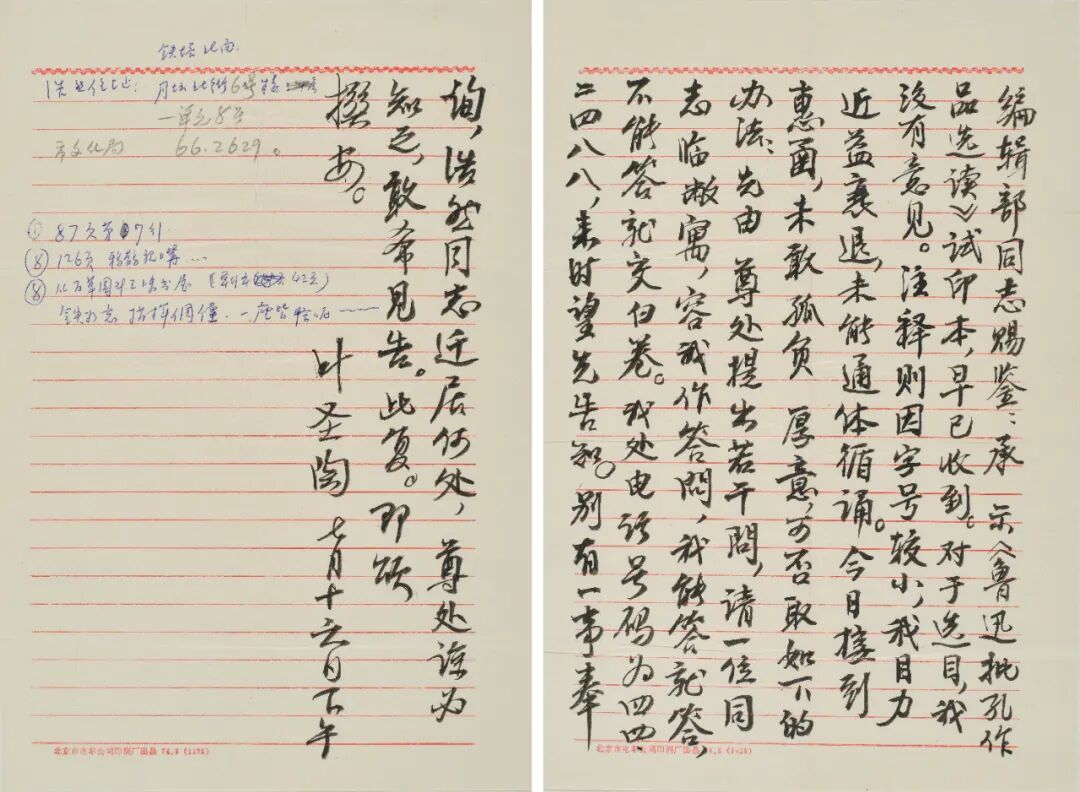 编辑部同志赐鉴：承 示《鲁迅批孔作
品选读》试印本，早已收到。对于选目，我
没有意见。注释则因字号较小，我目力
近益衰退，未能通体循诵。今日接到
惠函，未敢孤负 厚意，可否取如下的
办法：先由 尊处提出若干问，请一位同
志临敝寓，容我作答问，我能答就答，
不能答就交白卷。我处电话号码为四四、
二四八八，来时望先告知。别有一事奉
询，浩然同志迁居何处，尊处谅必
知之，敢希见告。此复。即颂
撰安。
叶圣陶 七月十六日下午
铁塔北面
浩然住址：月坛北街6号
一单元8号
市文化局 66.2629。
① 87页第 7行
⑧ 126页
⑧
北京市电车公司印刷厂出品 74.8 (1378)
北京市电车公司印刷厂出品